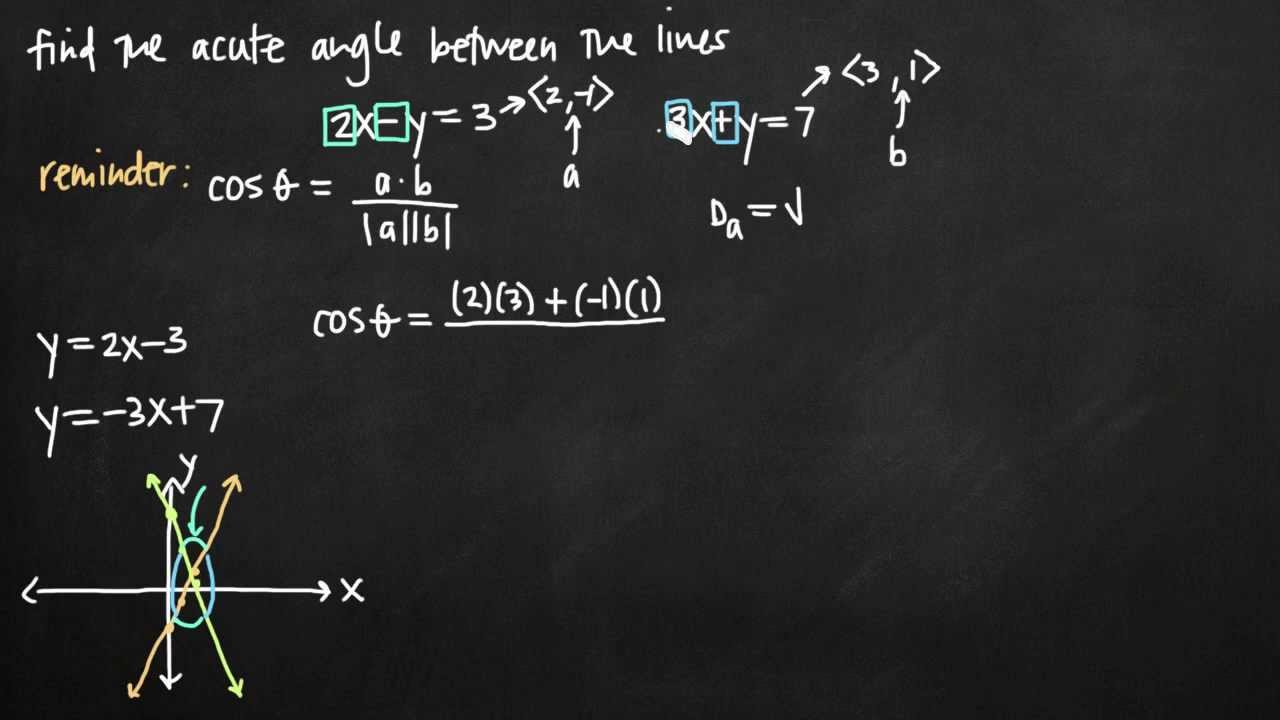 find the acute angle between the lines
2x-y=3→⟨2,-1⟩ 3x+y=7 →⟨3,1⟩
↑ a ↑ b
reminder: cos θ = a·b / |a||b|
D_a = √
cos θ = (2)(3)+(-1)(1)
y=2x-3
y=-3x+7
y
x